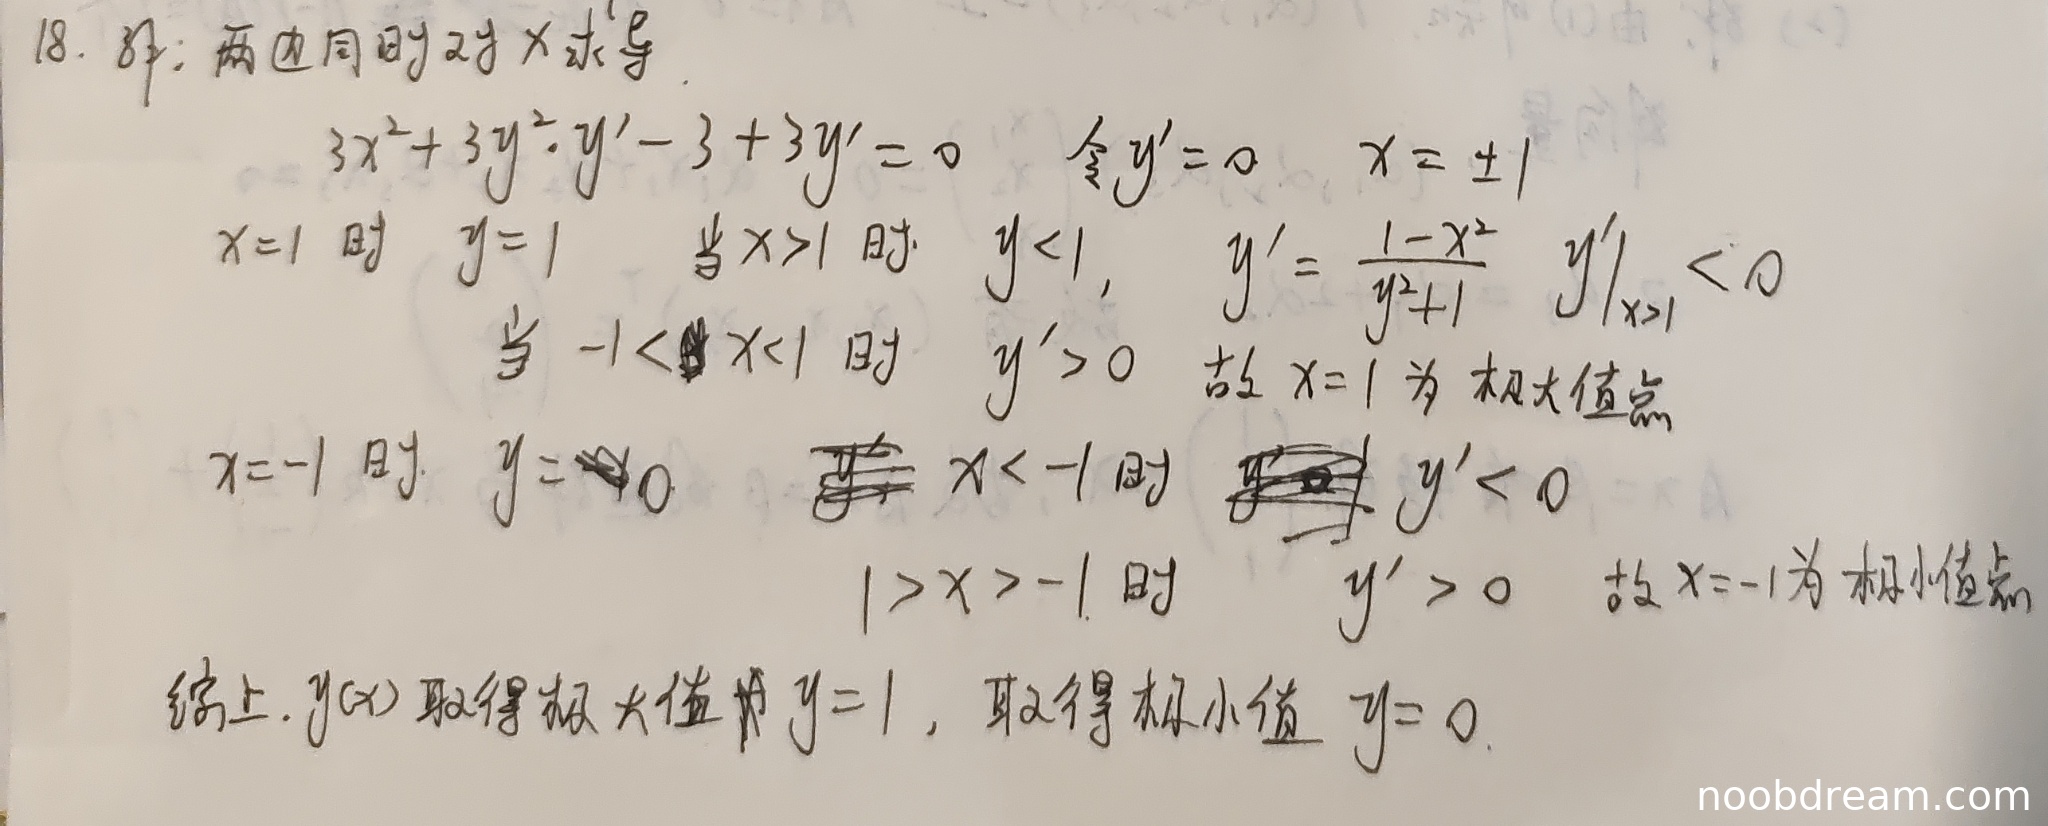 18. 解: 两边同时对x求导.
3x²+3y²·y′-3+3y′=0 令y′=0 x=±1
x=1时 y=1 当x>1时 y<1, y′=\frac{1-x²}{y²+1} y′|_{x>1}<0
当 -1<x<1时 y′>0 故x=1为极大值点
x=-1时 y=0 x<-1时 y′<0
1>x>-1时 y′>0 故x=-1为极小值点
综上.y(x)取得极大值y=1, 取得极小值y=0.
noobdream.com